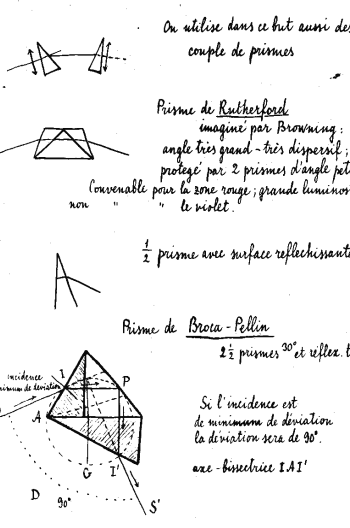 On utilise dans ce but aussi des
couple de prismes
Prisme de Rutherford
imaginé par Browning :
angle très grand - très dispersif ;
protegé par 2 prismes d'angle pet
Convenable pour la zone rouge ; grande luminos
non " " le violet.
1/2 prisme avec surface reflechissante
Prisme de Broca - Pellin
2 1/2 prismes 30° et réflex. t
incidence
minimum de déviation
I
P
A
G
I'
D
90°
S'
Si l'incidence est
de minimum de déviation
la déviation sera de 90°.
axe - bissectrice I A I'